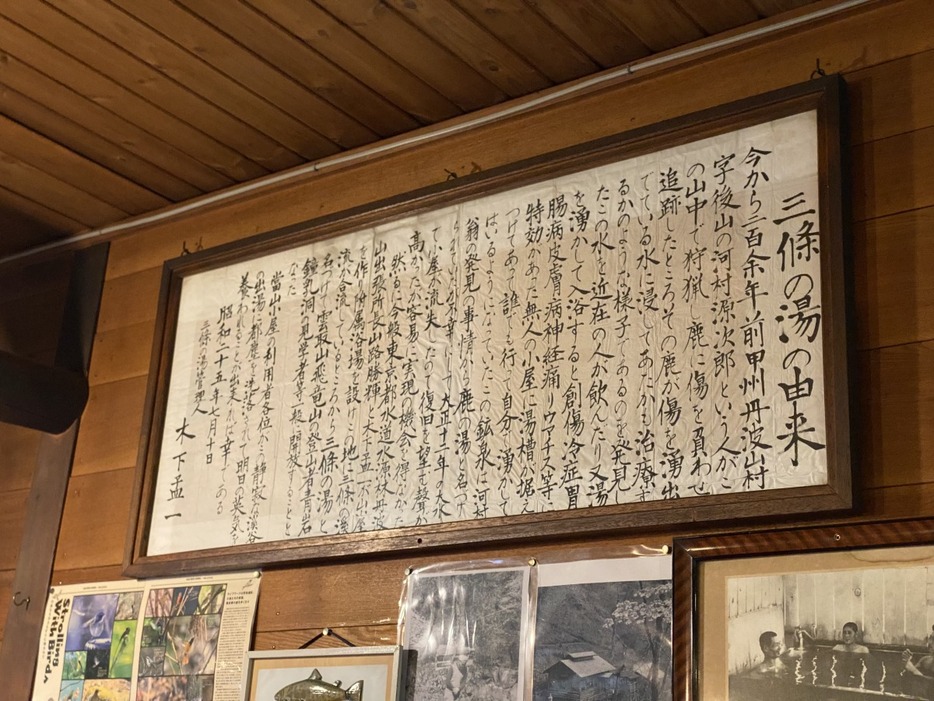 三條の湯の由来
今から二百余年前甲州丹波山村
字後山の河村源次郎という人がこ
の山中で狩猟し鹿に傷を負わせ
追跡したところその鹿が傷を湧出
でている水に浸してあたかも治療す
るかのような様子であるのを発見し
たこの水を近在の人が飲んだり又湯
を湧かして入浴すると創傷冷症胃
腸病皮膚病神経痛リウマチス等に
特効があった無人の小屋に湯槽が据え
つけてあって誰でも行って自分で湧かして
はいるようになっていたこの鉱泉に河村
翁発見の事情から鹿の湯と名づけ
大正十一年の大水
で小屋が流失したので復旧を望む聲が
高かったが容易に実現の機会を得なかった
然るに今般東京都水道水源林丹波
山出張所長山路勝禅と木下孟一が山屋
を作り附属浴場を設けこの地に三條の澤
流が合流しているところから三條の湯と
名づけて雲取山飛竜山の登山者青岩
鐘乳洞の見學者等に開放することと
なった
當山小屋の利用者各位が静寂な渓谷
の出湯で都塵を洗い落して明日の英気を
養われることが出来れば幸である
昭和二十五年七月十日
三條の湯管理人
木下孟一
Strolling
With Birdy